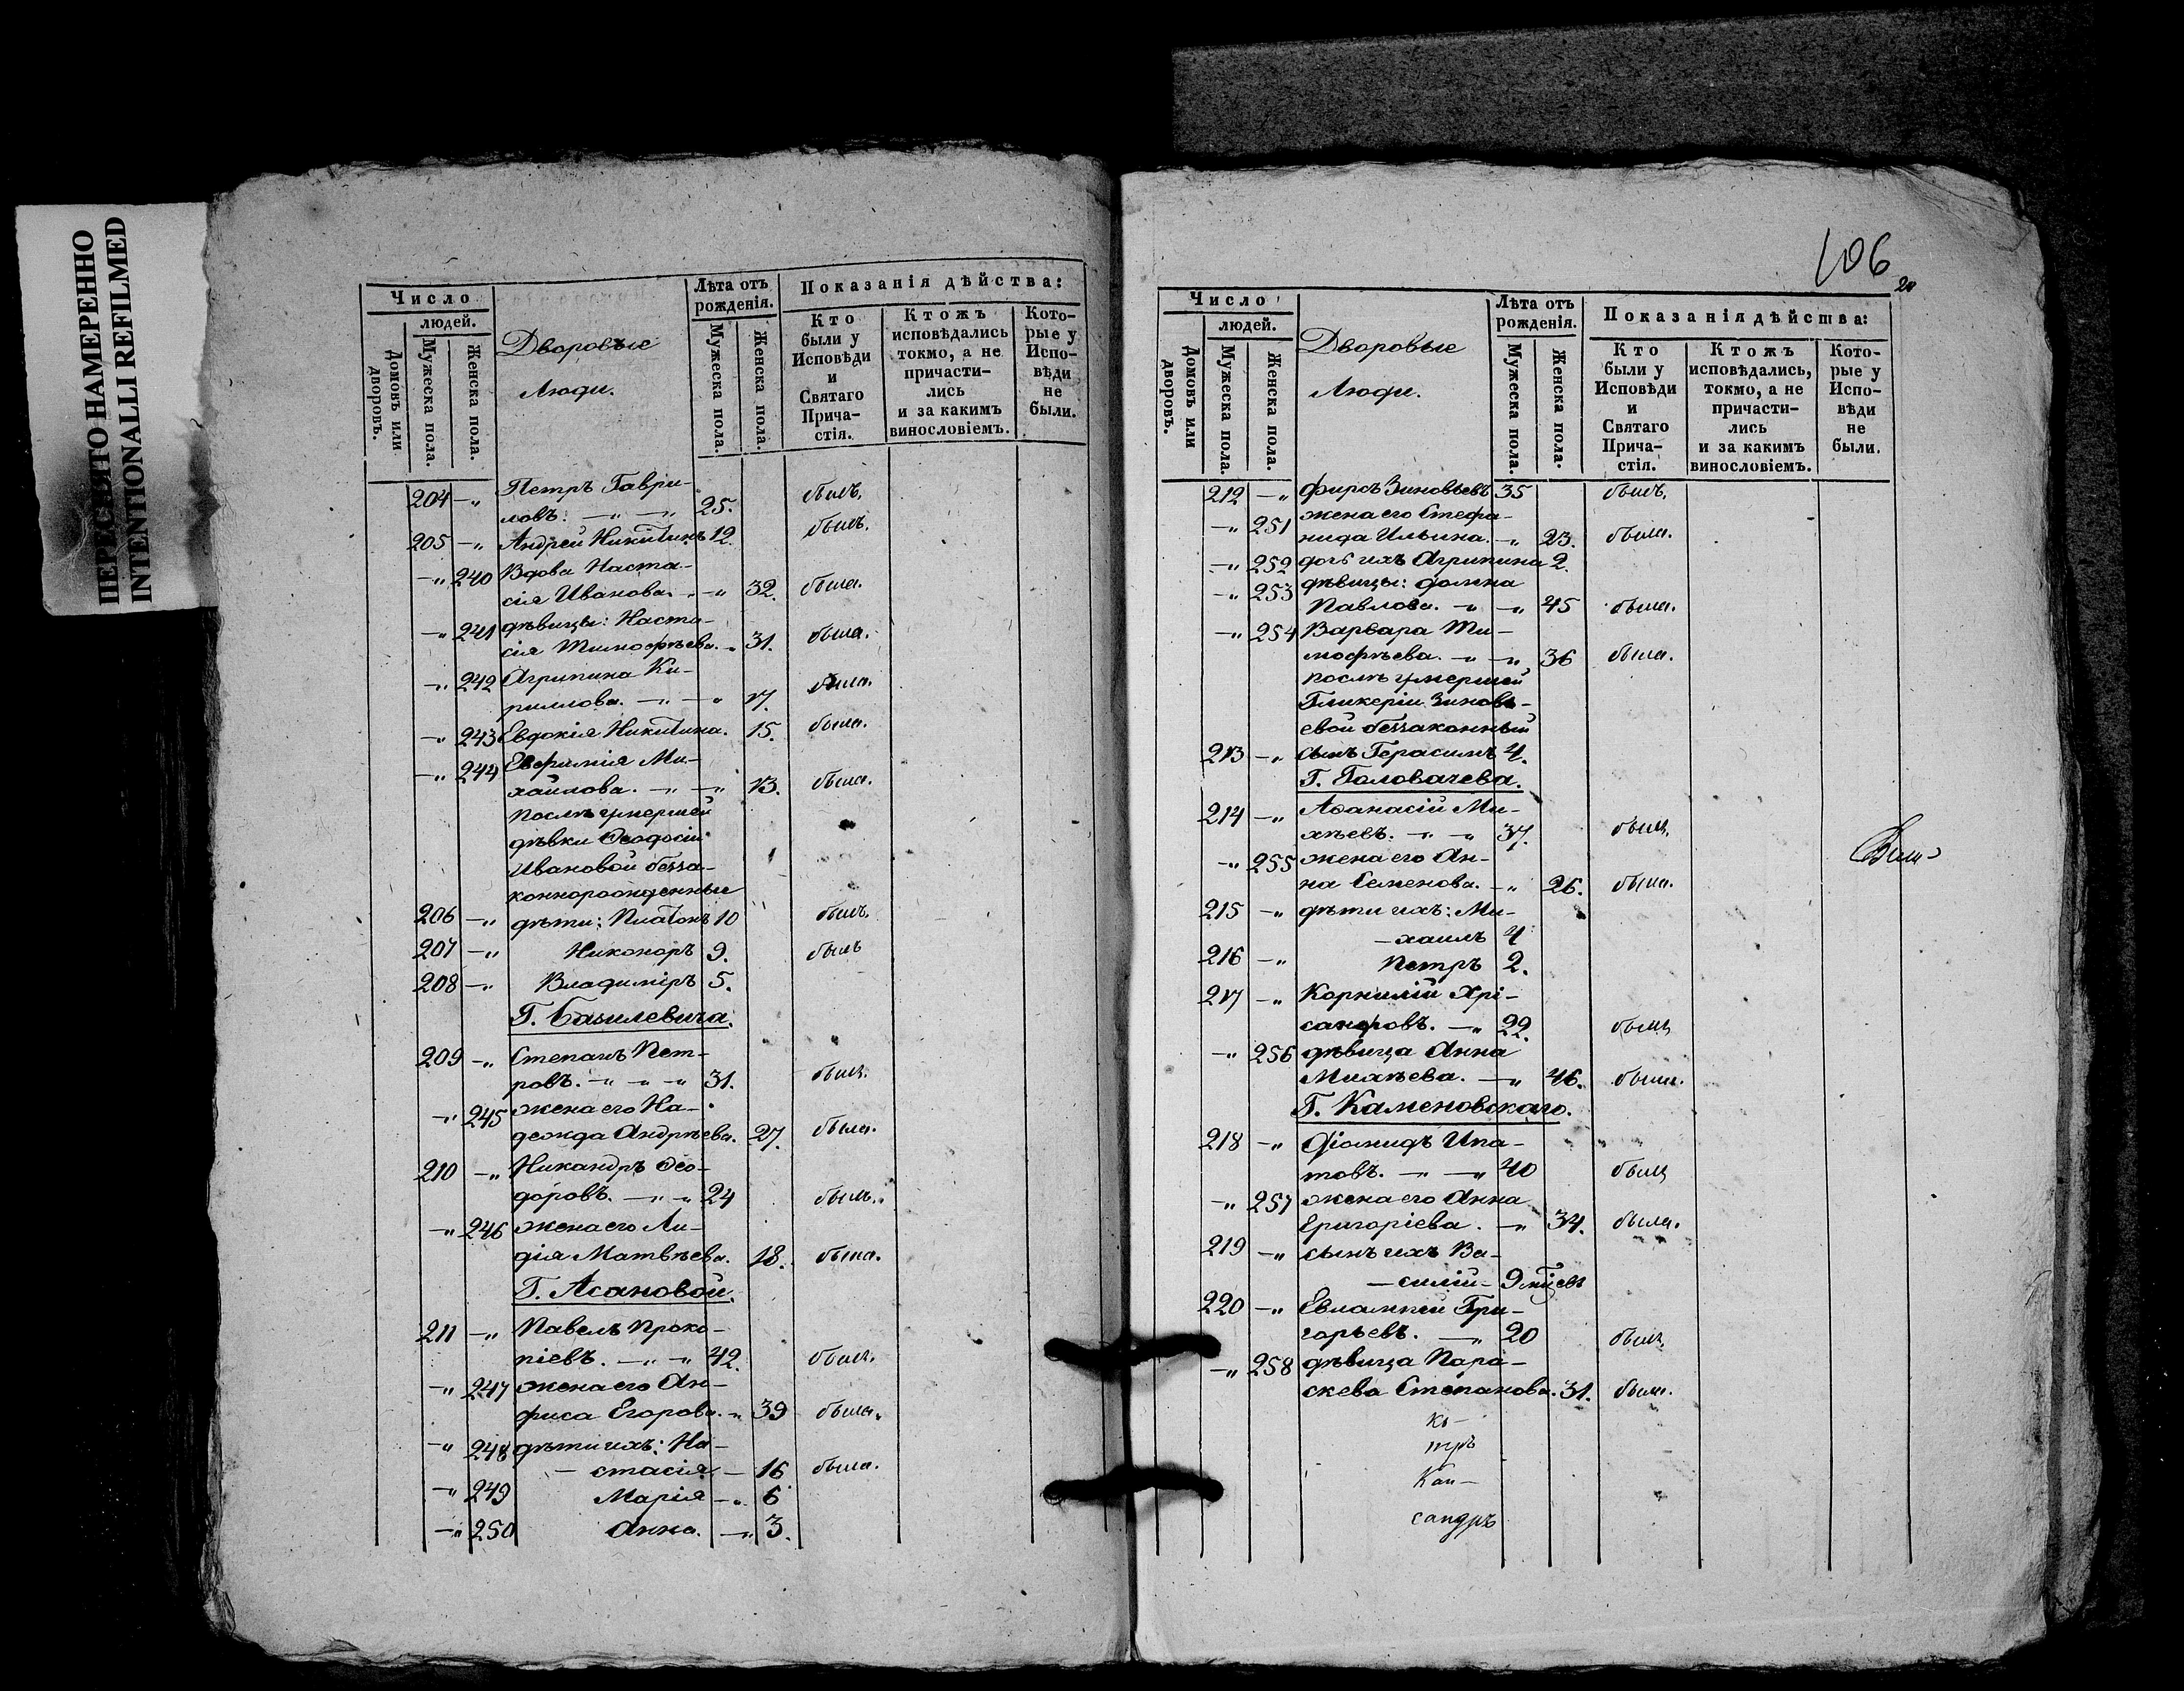 ПЕРЕСНЯТО НАМЕРЕННО
INTENTIONALLI REFILMED
Число
людей.
Домовъ или дворовъ.
Мужеска пола.
Женска пола.
Дворовые
Люди.
Лѣта отъ рожденія.
Мужеска пола.
Женска пола.
Показанія дѣйства:
Кто были у Исповѣди и Святаго Прича-стія.
Ктожъ исповѣдались токмо, а не причасти-лись и за какимъ винословіемъ.
Кото-рые у Испо-вѣди не были.
204 -„ Петръ Гаври-
ловъ. -„ -„ 25. былъ.
205 -„ Андрей Никитинъ 12. былъ.
-„ 240 Вдова Наста-
сія Иванова. -„ 32. была.
-„ 241 дѣвицы: Наста-
сія Тимофѣева. „ 31. была.
-„ 242 Агрипина Ки-
рилова. -„ -„ 17. была.
-„ 243 Евдокія Никитина. 15. была.
-„ 244 Евфимія Ми-
хайлова. -„ -„ 13. была.
послѣ умершей
дѣвки Ѳеодосіи
Ивановой безза-
коннорожденные
206 -„ дѣти: Платонъ 10 былъ.
207 -„ Никоноръ 9. былъ
208 -„ Владиміръ 5.
Г. Базилевича.
209 -„ Степанъ Пет-
ровъ. -„ -„ -„ 31. былъ.
-„ 245 жена его На-
дежда Андрѣева. 27. была.
210 -„ Никандръ Ѳео-
доровъ. -„ -„ 24 былъ.
-„ 246 жена его Ли-
дія Матвѣева. 18. была.
Г. Асановой.
211 -„ Павелъ Проко-
піевъ. -„ -„ 42. былъ.
-„ 247 жена его Ан-
фиса Егорова. -„ 39 была.
-„ 248 дѣти ихъ: На-
- стасія - 16 была.
-„ 249 Марія -„ 6
-„ 250 Анна. -„ 3.
106
20
Число
людей.
Домовъ или дворовъ.
Мужеска пола.
Женска пола.
Дворовые
Люди.
Лѣта отъ рожденія.
Мужеска пола.
Женска пола.
Показанія дѣйства:
Кто были у Исповѣди и Святаго Прича-стія.
Ктожъ исповѣдались, токмо, а не причасти-лись и за какимъ винословіемъ.
Кото-рые у Испо-вѣди не были.
212 -„ Фирсъ Зиновьевъ 35 былъ.
жена его Стефа-
-„ 251 нида Ильина. -„ 23. была.
-„ 252 дочь ихъ Агрипина 2.
-„ 253 дѣвицы: Домна
Павлова. -„ -„ 45 была.
-„ 254 Варвара Ти-
мофѣева. -„ -„ 36 была.
послѣ умершей
Гликеріи Зиновь-
евой беззаконный
213 -„ сынъ Герасимъ 4.
Г. Головачева.
214 -„ Аѳанасій Ми-
хѣевъ. -„ -„ 37. былъ
-„ 255 жена его Ан-
на Семенова. -„ 26. была.
215 -„ дѣти ихъ: Ми-
- хаилъ 4
216 -„ Петръ 2.
217 -„ Корнилій Хрі-
санфовъ. -„ 22. былъ
-„ 256 дѣвица Анна
Михѣева. -„ 46. была.
Г. Каменовскаго.
218 -„ Діомидъ Ипа-
товъ. -„ -„ 40 былъ
-„ 257 жена его Анна
Григоріева. -„ 34. была.
219 -„ сынъ ихъ Ва-
- силій - 9 мцевъ
220 -„ Евлампей Гри-
горьевъ. -„ 20 былъ
-„ 258 дѣвица Пара-
скева Степанова. 31. была.
тръ
Кан-
сандръ